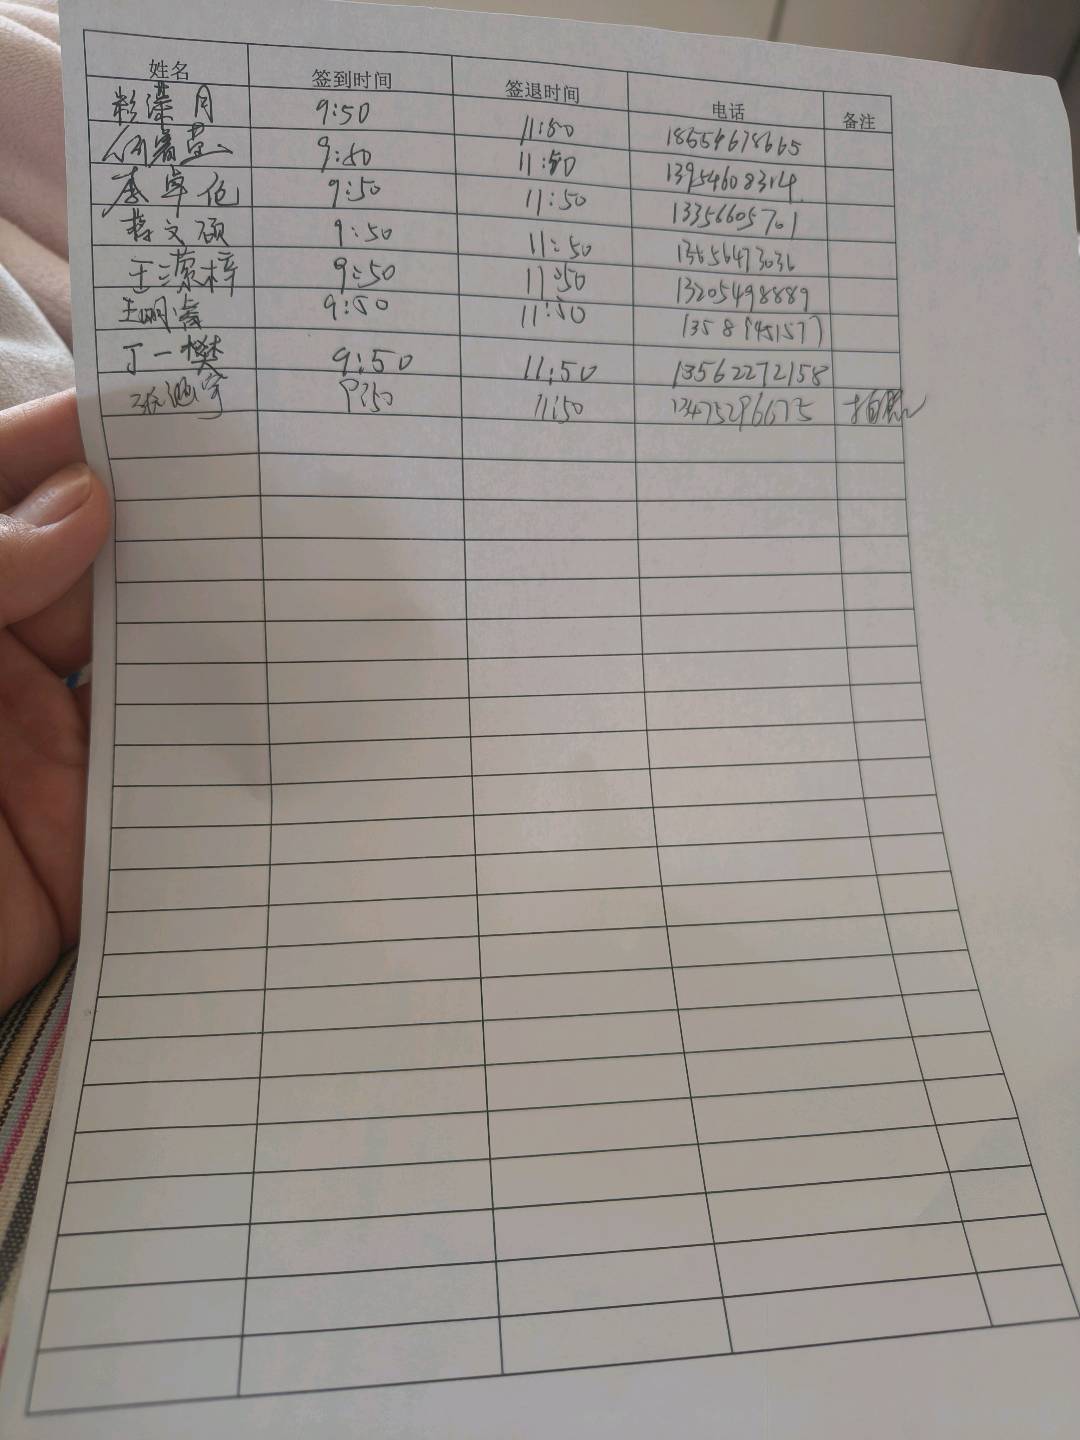 姓名 签到时间 签退时间 电话 备注
月 9:50 11:50 18654678665
何 9:50 11:50 13954608314
李卓伦 9:50 11:50 13356605701
蒋文硕 9:50 11:50 13656473036
王 梓 9:50 11:50 13205498889
王明 9:50 11:50
丁一樊 9:50 11:50 13562272158
张涵宇 9:50 11:50 13475296675 拍照